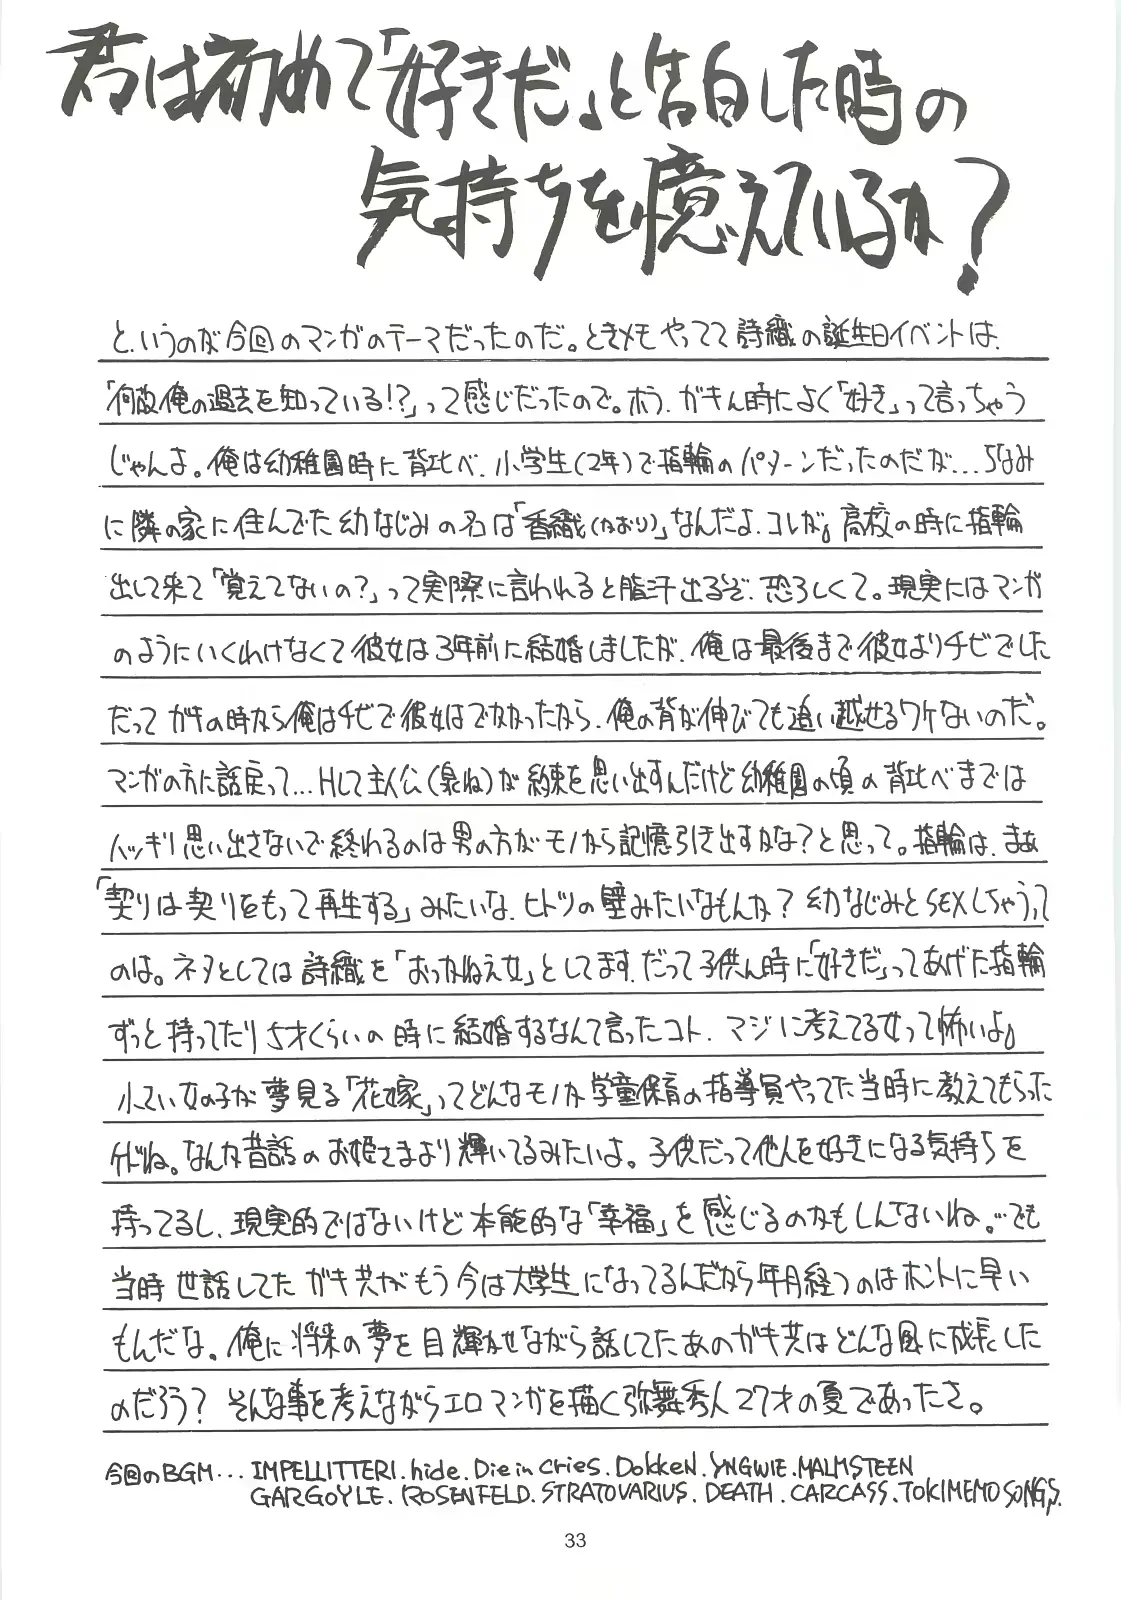 君は初めて「好きだ」と告白した時の
気持ちを憶えているか?
というのが今回のマンガのテーマだったのだ。ときメモやってて詩織の誕生日イベントは、
「何故俺の過去を知っている!?」って感じだったので。ホラ、ガキん時によく「好き」って言っちゃう
じゃんよ。俺は幼稚園時に背比べ、小学生(2年)で指輪のパターンだったのだが…ちなみ
に隣の家に住んでた幼なじみの名は「香織(かおり)」なんだよ、コレが。高校の時に指輪
出して来て「覚えてないの?」って実際に言われると脂汗出るぞ、恐ろしくて。現実にはマンガ
のようにいくわけなくて彼女は3年前に結婚しましたが、俺は最後まで彼女よりチビでした
だってガキの時から俺はチビで彼女はでかかったから、俺の背が伸びても追い越せるワケないのだ。
マンガの方に話戻って…Hして主人公(臬ね)が約束を思い出すんだけど幼稚園の頃の背比べまでは
ハッキリ思い出さないで終わるのは男の方がモノから記憶引き出すかな?と思って。指輪は、まぁ
「契りは契りをもって再生する」みたいな、ヒトツの壁みたいなもんか?幼なじみとSEXしちゃうって
のは。ネタとしては詩織を「おっかねえ女」としてます、だって子供ん時に「好きだ」ってあげた指輪
ずっと持ってたり5才くらいの時に結婚するなんて言ったコト、マジに考えてる女って怖いよ。
小さい女の子が夢見る「花嫁」ってどんなモノか学童保育の指導員やってた当時に教えてもらった
けどね。なんか昔話のお姫さまより輝いてるみたいよ。子供だって他人を好きになる気持ちを
持ってるし、現実的ではないけど本能的な「幸福」を感じるのかもしんないね。…でも
当時世話してたガキ共がもう今は大学生になってるんだから年月経つのはホントに早い
もんだな。俺に将来の夢を目輝かせながら話してたあのガキ共はどんな風に成長した
のだろう?そんな事を考えながらエロマンガを描く弥舞秀人27才の夏であったさ。
今回のBGM...IMPELLITTERI.hide.Die in Cries.DOKKEN.YNGWIE.MALMSTEEN
GARGOYLE.ROSENFELD.STRATOVARIUS.DEATH.CARCASS.TOKIMEMO SONGS.
33